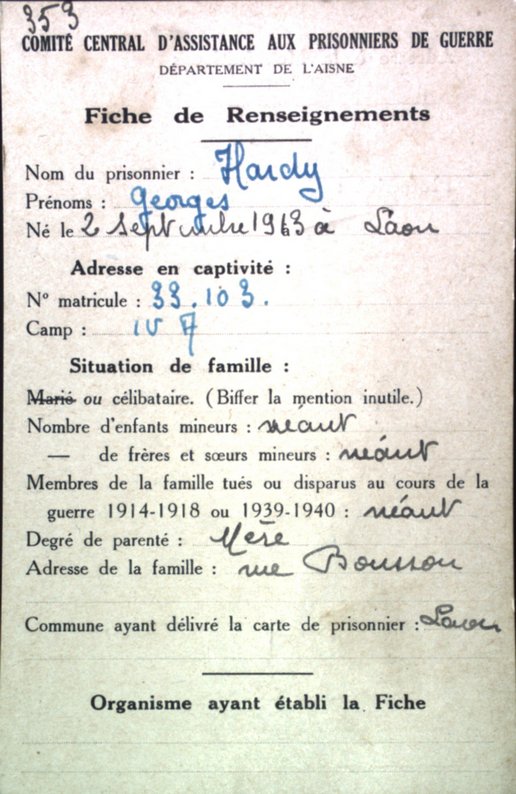 353
COMITÉ CENTRAL D'ASSISTANCE AUX PRISONNIERS DE GUERRE
DÉPARTEMENT DE L'AISNE
Fiche de Renseignements
Nom du prisonnier : Hardy
Prénoms : Georges
Né le 2 Septembre 1913 à Laon
Adresse en captivité :
N° matricule : 33.103.
Camp : IV
Situation de famille :
Marié ou célibataire. (Biffer la mention inutile.)
Nombre d'enfants mineurs : néant
— de frères et sœurs mineurs : néant
Membres de la famille tués ou disparus au cours de la
guerre 1914-1918 ou 1939-1940 : néant
Degré de parenté : Mère
Adresse de la famille : rue
Commune ayant délivré la carte de prisonnier : Laon
Organisme ayant établi la Fiche